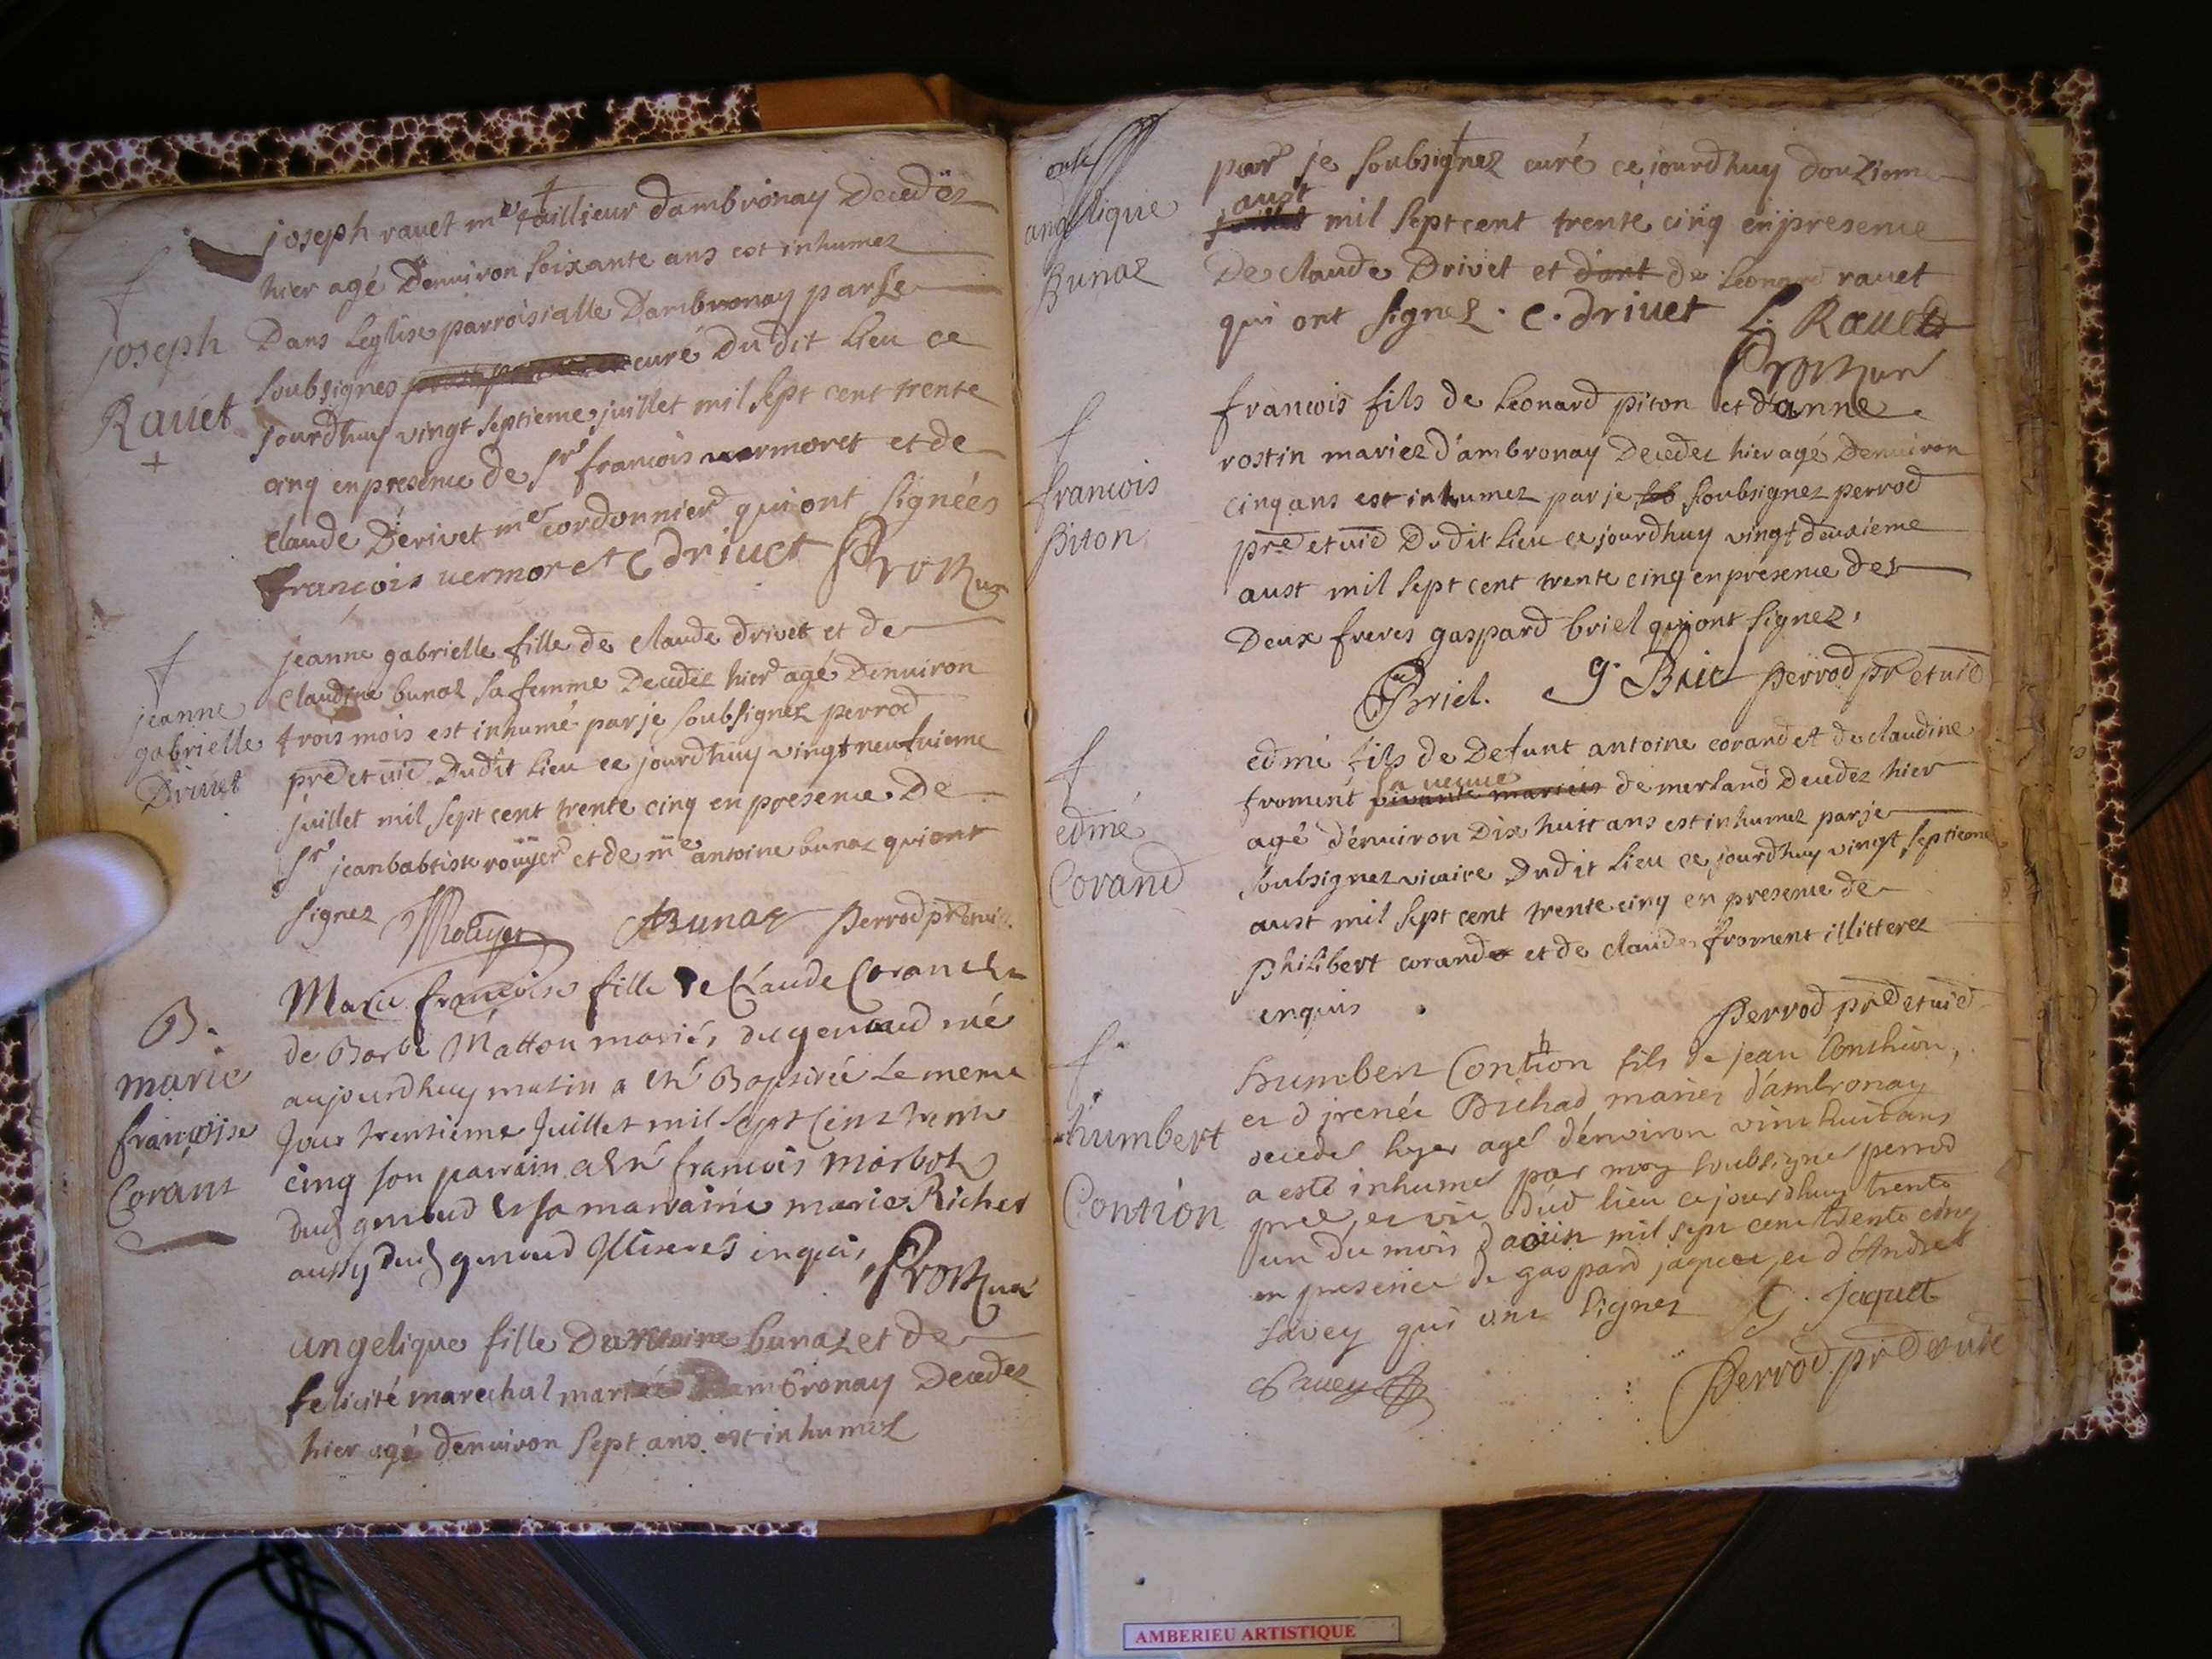 joseph rauet me taillieur dambronay Decedéz
hier agé Denuiron soixante ans est inhumez
joseph
Dans Leglise parroisialle Dambronay par Je
Rauet
soubsignes curé Du dit Lieu ce
jourdhuy vingt septieme juillet mil sept cent trente
cinq en presence de sr francois uermoret et de
claude Derivet mer cordonnier qui ont signées
françois uermoret C driuet
jeanne gabrielle fille de claude drivet et de
claudine bunaz sa femme Decedez hier agé Denuiron
jeanne
gabrielle
Driuet
trois mois est inhumé par je soubsignez perrod
pre et uic Dudit Lieu ce jourdhuy vingt neufuieme
juillet mil sept cent trente cinq en presence De
sr jean babtiste roüyer et de me antoine bunaz qui ont
signez JRoüyer ABunaz Perrod pre et uic.
B.
marie
françoise
Corant
Marie françoise fille De Claude Corand &
de Barbe Mattou mariés du genoud née
aujourdhuy matin a eté Baptisée Le meme
Jour trentieme Juillet mil sept Cent trente
cinq son parrain a eté francois morbot
dud genoud & sa marraine marie Richet
aussy dud genoud Illiteres inquis,
angelique fille Dantoine bunaz et de
felicité marechal mariée Dambronay Decedez
hier agé denuiron sept ans est inhumez
angelique
Bunaz
par je soubsignez curé ce jourdhuy douzieme
aust
mil sept cent trente cinq en presence
De claude Drivet et dont de Leonard rauet
qui ont signez. C. driuet L. Rauet
francois
piton
francois fils de Leonard piton et d'anne
rostin mariez d'ambronay Decedez hier agé Denuiron
cinq ans est inhumez par je soubsignez perrod
pre et uic Dudit Lieu ce jourdhuy vingt deuxieme
aust mil sept cent trente cinq en presence des
Deux freres gaspard briel qui ont signez,
Briel. g. Briel perrod pre et uic
edmé
Corand
edmé fils de Defunt antoine corand et de claudine
sa ueuue
froment vivante mariees de merland Decedez hier
agé d'enuiron Dix huit ans est inhumez par je
soubsignez vicaire Dudit Lieu ce jourdhuy vingt septieme
aust mil sept cent trente cinq en presence de
philibert corand et de claude froment illitterez
enquis. Perrod pre et uic
humbert
Contion
humbert Conthion fils de jean Conthion,
et d jrenée Bichad mariés d'ambronay
decedel hyer agel d'énviron vint huit ans
a esté inhumel par moy soubsignel perrod
pre et vic dud lieu cejourdhuy trente
un du mois d aoüst mil sept cent trente cinq
en presence de gaspard jaquet et d'Andre
Savey qui ont signez G. Jaquet
Sauey Perrod pre et uic
AMBERIEU ARTISTIQUE